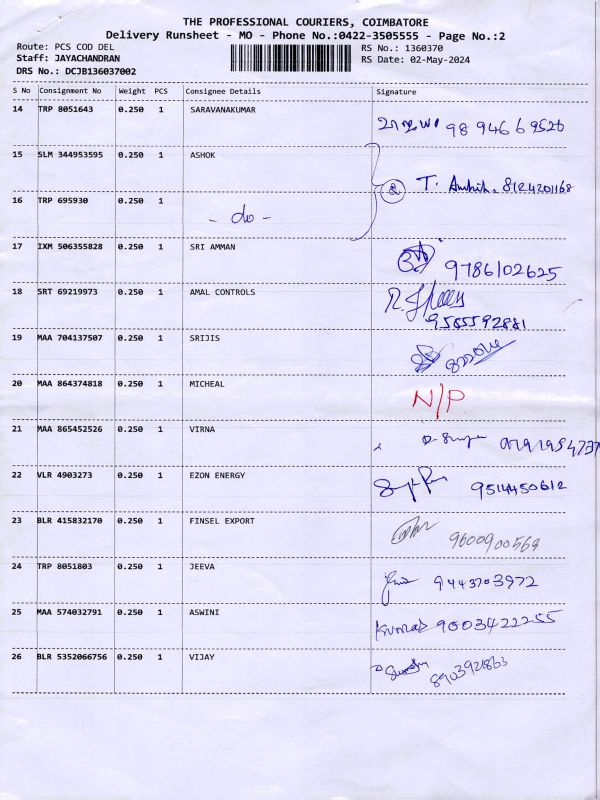 THE PROFESSIONAL COURIERS, COIMBATORE
Delivery Runsheet - MO - Phone No.:0422-3505555 - Page No.:2
Route: PCS COD DEL RS No.: 1360370
Staff: JAYACHANDRAN RS Date: 02-May-2024
DRS No.: DCJB136037002
S No Consignment No Weight PCS Consignee Details Signature
14 TRP 8051643 0.250 1 SARAVANAKUMAR
98 94669526
15 SLM 344953595 0.250 1 ASHOK
② T. 8124201168
16 TRP 695930 0.250 1
- do -
17 IXM 506355828 0.250 1 SRI AMMAN
9786102625
18 SRT 69219973 0.250 1 AMAL CONTROLS
9585592881
19 MAA 704137507 0.250 1 SRIJIS
20 MAA 864374818 0.250 1 MICHEAL
N/P
21 MAA 865452526 0.250 1 VIRNA
22 VLR 4903273 0.250 1 EZON ENERGY
9514450612
23 BLR 415832170 0.250 1 FINSEL EXPORT
9600900569
24 TRP 8051803 0.250 1 JEEVA
9443703972
25 MAA 574032791 0.250 1 ASWINI
Kumar 9003422255
26 BLR 5352066756 0.250 1 VIJAY
8903921863